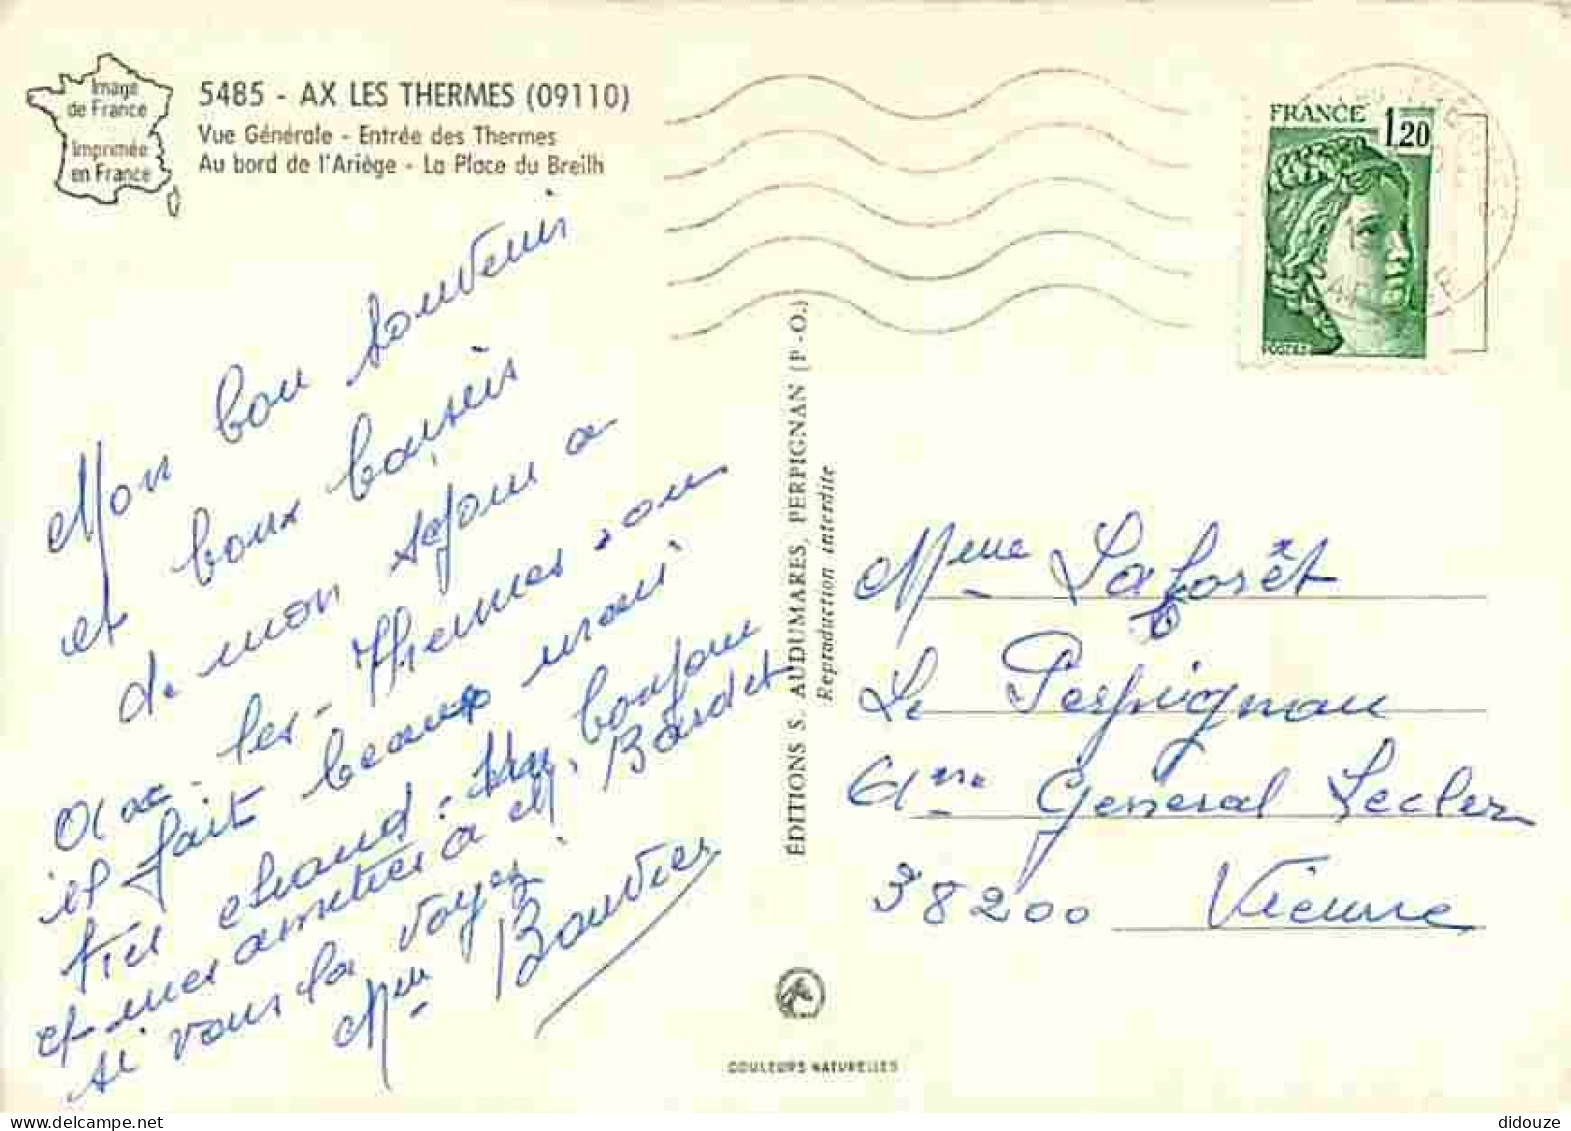 Image
de France
Imprimée
en France
5485 - AX LES THERMES (09110)
Vue Générale - Entrée des Thermes
Au bord de l'Ariège - La Place du Breilh
Mon bon souvenir
et bons baisers
de mon séjour a
ax-les-Thermes, ou
il fait beaucoup
très chaud. bonjour
et mes amitiés a M. Bardet
si vous la voyez
Mme Bouvier
ÉDITIONS S. AUDUMARES, PERPIGNAN (P.-O.)
Reproduction interdite
FRANCE
1,20
POSTES
Mme Laforêt
Le Perpignan
Général Lecler
38200 Vienne
COULEURS NATURELLES
didouze